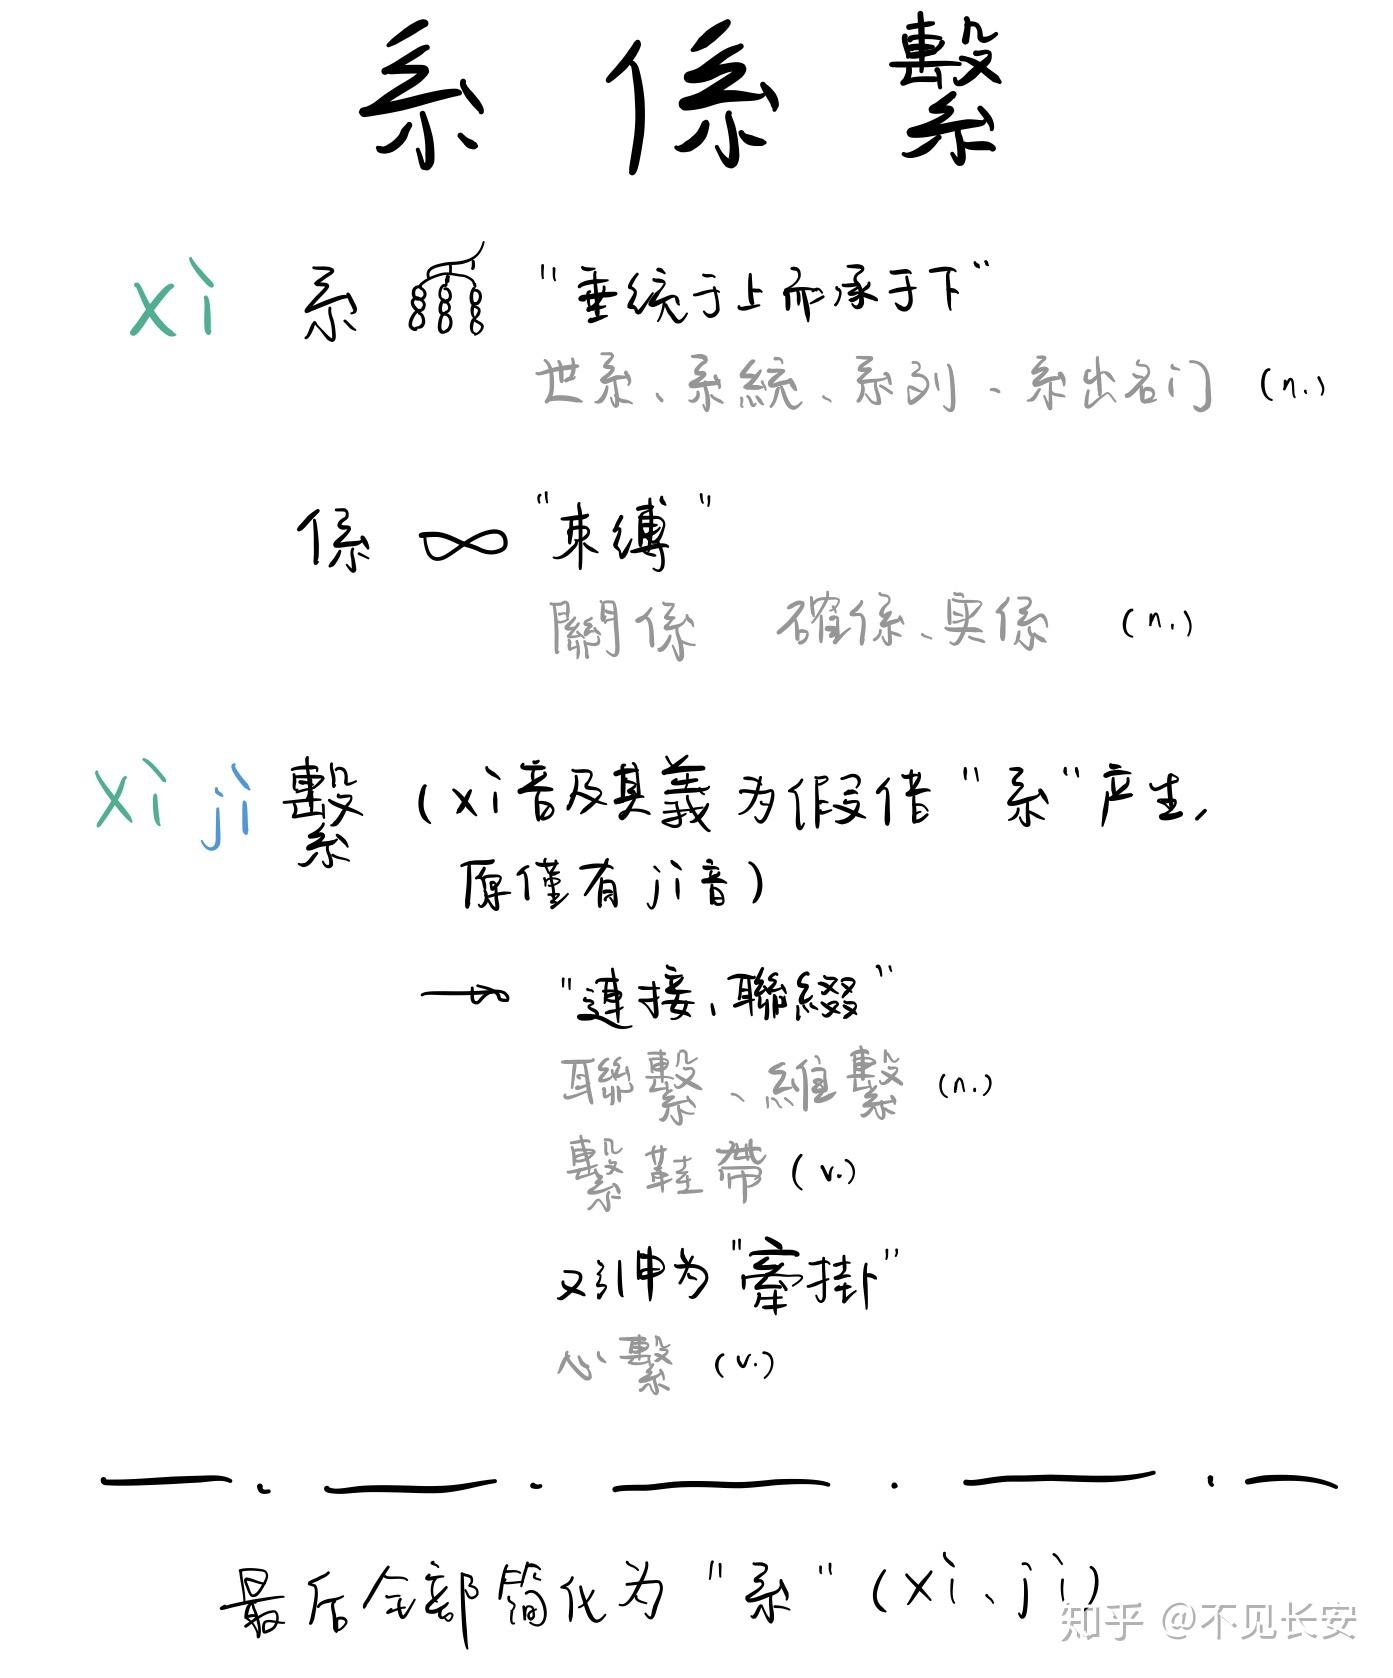 系 係 繫
xì 系 "垂统于上而承于下"
世系、系統、系列、系出名门 (n.)
係 "束缚"
關係 確係、実係 (n.)
xì jì 繫 (xì音及其義为假借"系"产生,
原僅有jì音)
"連接、聯綴"
聯繫、維繫 (n.)
繫鞋帶 (v.)
又引申为"牽掛"
心繫 (v.)
最后全部简化为"系"(xì、jì)
知乎 @不见长安